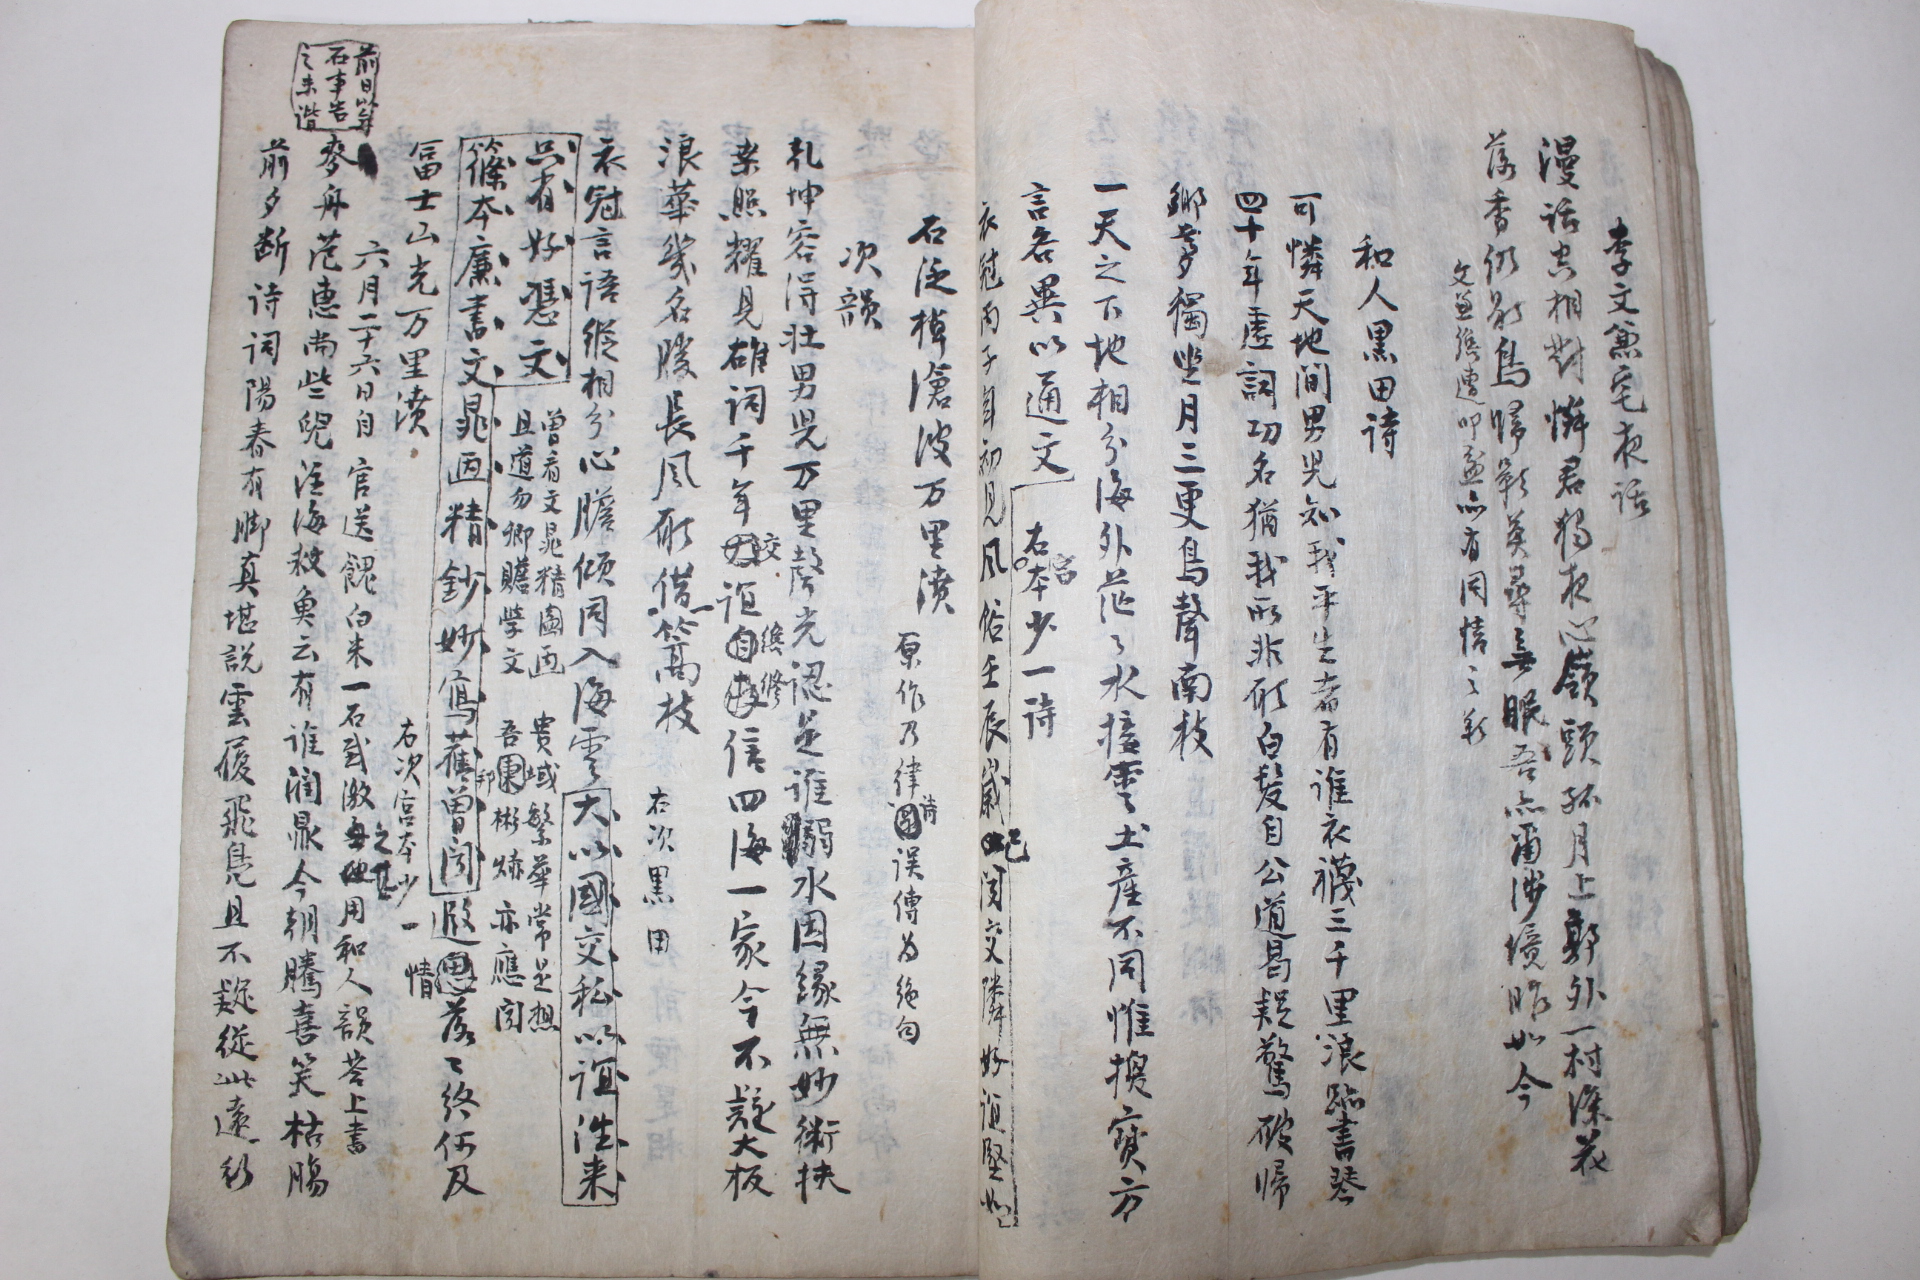 李文兼宅夜話
漫話共相對憐君獨夜心嶺頭孤月上郭外一村深花
落香仍鳥歸影莫尋無眠吾亦爾涉境昨如今
亦有同情之
和人黑田詩
可憐天地間男児知我平生者有誰衣襪三千里浪跡書琴
四十年虛詞功名猶我所非願白髮自公道曷疑驚破歸
鄉夢獨坐月三更鳥聲南枝
一天之下地相分海外茫々水接雲土産不同惟換寶方
言各異以通文 右宮本少一詩
衣冠丙子目初見風俗壬辰歲已聞交隣好誼堅
石泛棹滄波万里濆 原作乃律詩誤傳为絶句
次韻
乹坤容得壯男児万里聲光認是誰弱水因緣無妙術扶
桒照耀見雄詞千年交誼修信四海一家今不疑大板
浪華幾名勝長風願借一篙枝 右次黑田
衣冠言語縱相分心膽傾同入海雲大小國交私以誼淮来
只有好憑文 曾看文晁精圖画 貴域繁華常足想
且道勿卿贍学文 吾邦彬焃亦應聞
篠本廉書文晁画精鈔妙寫舊曽聞遐情落々終何及
冨士山光万里濆 右次宮本少一
六月二十六日自官送餽白米一石感激之甚用和人韻荅上書
麥舟范惠尚些貎注海救魚云有谁潤鼎今朝騰喜笑枯腸
前夕断诗词陽春有脚真堪説雲履飛鳧且不疑從此遠
前日
石事告
之未諧